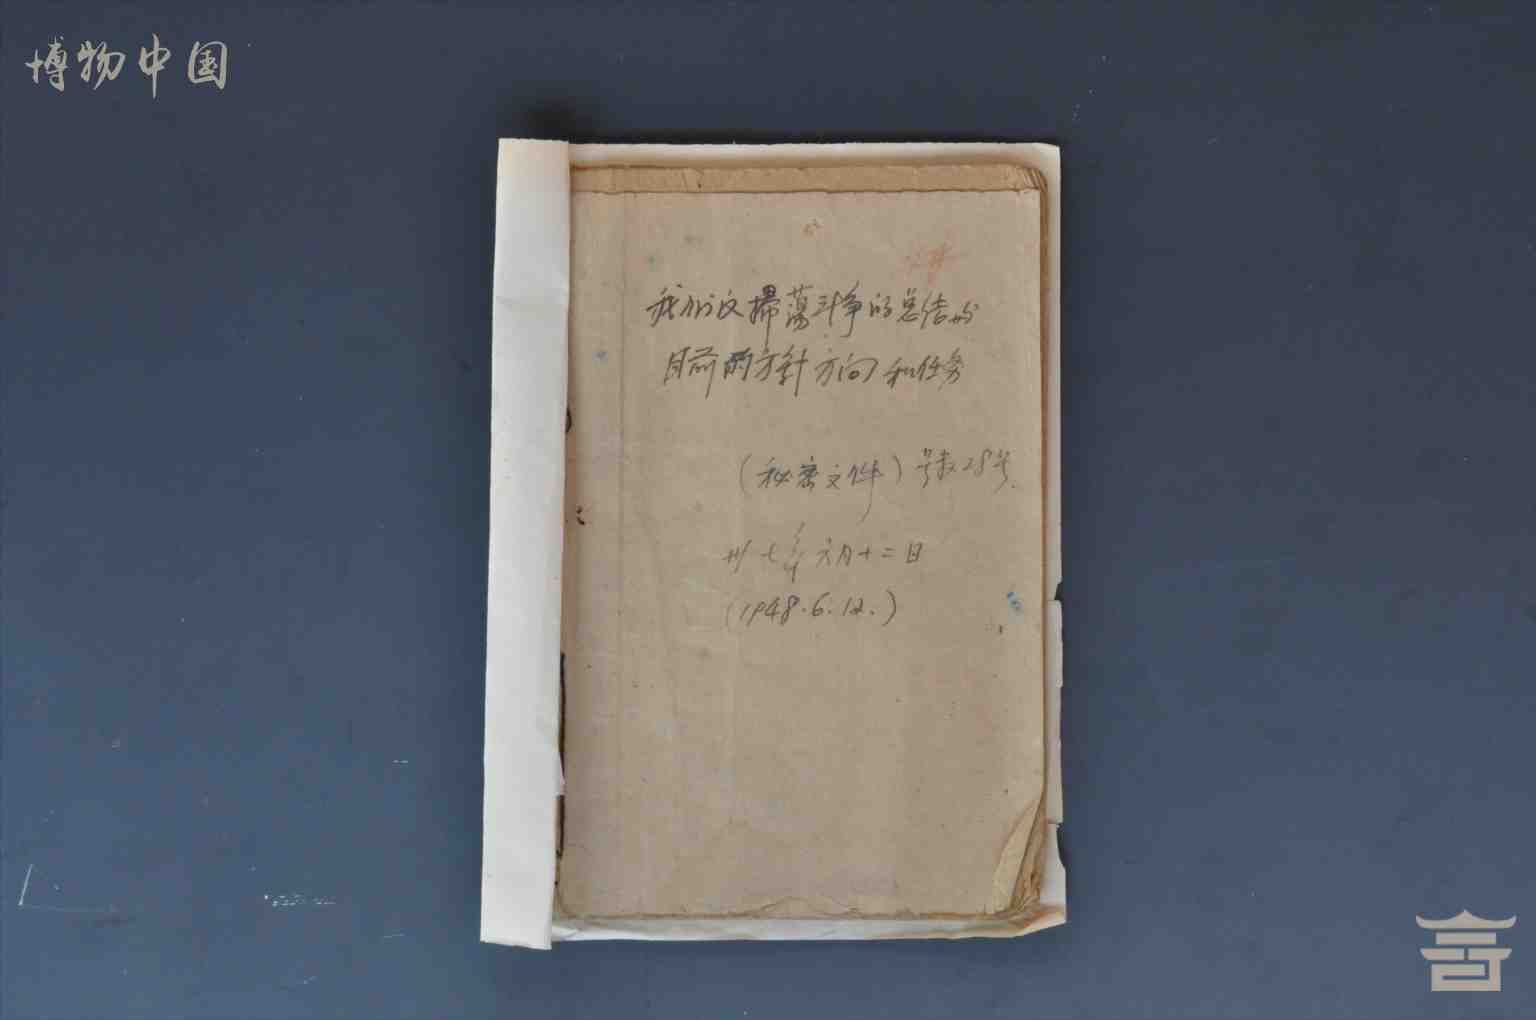 博物中国
我们反掃蕩斗争的总结与
目前的方針方向和任务
(秘密文件) 号数28号
卅七年六月十二日
(1948.6.12.)